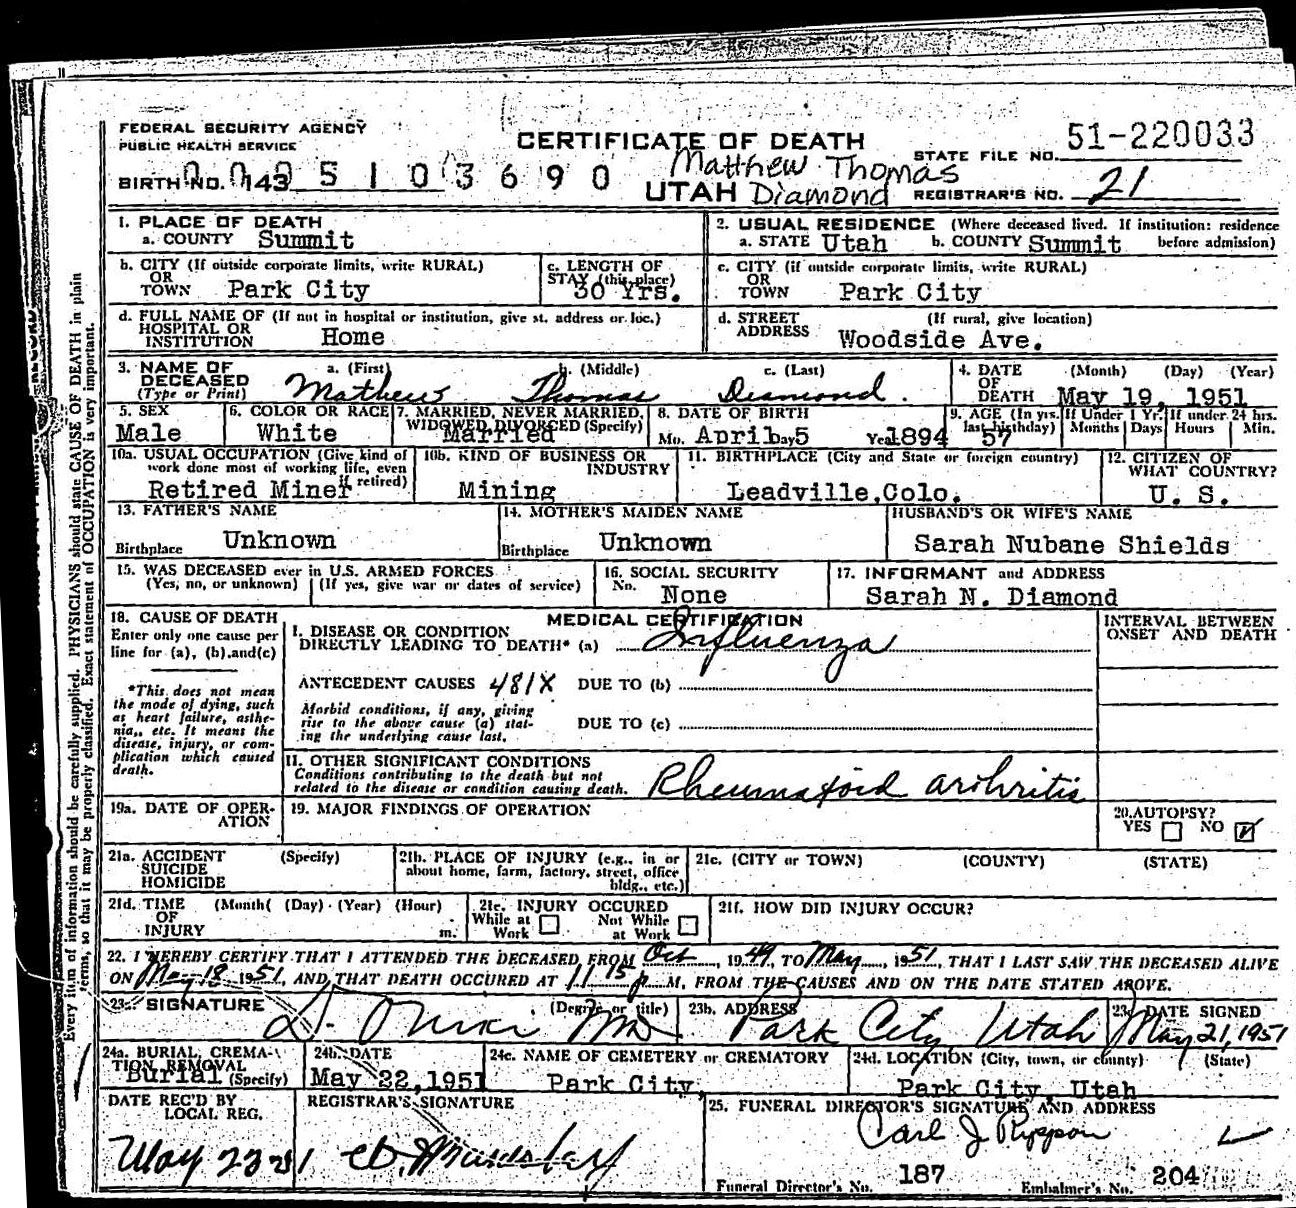 FEDERAL SECURITY AGENCY
PUBLIC HEALTH SERVICE
CERTIFICATE OF DEATH
51-220033
STATE FILE NO.
Matthew Thomas
BIRTH NO. 143 5 1 0 3 6 9 0
UTAH Diamond
REGISTRAR'S NO. 21
1. PLACE OF DEATH
a. COUNTY Summit
2. USUAL RESIDENCE (Where deceased lived. If institution: residence
a. STATE Utah b. COUNTY Summit before admission)
b. CITY (If outside corporate limits, write RURAL)
OR
TOWN Park City
c. LENGTH OF
STAY (this place)
30 Yrs.
c. CITY (if outside corporate limits, write RURAL)
OR
TOWN Park City
d. FULL NAME OF (If not in hospital or institution, give st. address or loc.)
HOSPITAL OR
INSTITUTION Home
d. STREET (If rural, give location)
ADDRESS Woodside Ave.
3. NAME OF a. (First) b. (Middle) c. (Last)
DECEASED
(Type or Print) Mathew Thomas Diamond.
4. DATE (Month) (Day) (Year)
OF
DEATH May 19, 1951
5. SEX
Male
6. COLOR OR RACE
White
7. MARRIED, NEVER MARRIED,
WIDOWED DIVORCED (Specify)
Married
8. DATE OF BIRTH
Mo. April Day 5 Year 1894
9. AGE (In yrs. last birthday) 57
If Under 1 Yr. Months Days
If under 24 hrs. Hours Min.
10a. USUAL OCCUPATION (Give kind of
work done most of working life, even
if retired)
Retired Miner
10b. KIND OF BUSINESS OR
INDUSTRY
Mining
11. BIRTHPLACE (City and State or foreign country)
Leadville, Colo.
12. CITIZEN OF
WHAT COUNTRY?
U. S.
13. FATHER'S NAME
Unknown
Birthplace
14. MOTHER'S MAIDEN NAME
Unknown
Birthplace
HUSBAND'S OR WIFE'S NAME
Sarah Nubane Shields
15. WAS DECEASED ever in U.S. ARMED FORCES
(Yes, no, or unknown) (If yes, give war or dates of service)
16. SOCIAL SECURITY
No. None
17. INFORMANT and ADDRESS
Sarah N. Diamond
18. CAUSE OF DEATH
Enter only one cause per
line for (a), (b), and (c)
*This does not mean
the mode of dying, such
as heart failure, asthe-
nia,, etc. It means the
disease, injury, or com-
plication which caused
death.
MEDICAL CERTIFICATION
I. DISEASE OR CONDITION
DIRECTLY LEADING TO DEATH* (a) Influenza
ANTECEDENT CAUSES 481X DUE TO (b)
Morbid conditions, if any, giving
rise to the above cause (a) stat-
ing the underlying cause last.
DUE TO (c)
INTERVAL BETWEEN
ONSET AND DEATH
II. OTHER SIGNIFICANT CONDITIONS
Conditions contributing to the death but not
related to the disease or condition causing death.
Rheumatoid arthritis
19a. DATE OF OPER-
ATION
19. MAJOR FINDINGS OF OPERATION
20. AUTOPSY?
YES NO
21a. ACCIDENT (Specify)
SUICIDE
HOMICIDE
21b. PLACE OF INJURY (e.g., in or
about home, farm, factory, street, office
bldg., etc.)
21c. (CITY or TOWN) (COUNTY) (STATE)
21d. TIME (Month( (Day) (Year) (Hour)
OF
INJURY m.
21e. INJURY OCCURED
While at Work Not While at Work
21f. HOW DID INJURY OCCUR?
22. I HEREBY CERTIFY THAT I ATTENDED THE DECEASED FROM Oct, 1949, TO May, 1951, THAT I LAST SAW THE DECEASED ALIVE
ON May 18 1951, AND THAT DEATH OCCURED AT 11 15 p M, FROM THE CAUSES AND ON THE DATE STATED ABOVE.
23a. SIGNATURE (Degree or title)
MD
23b. ADDRESS
Park City Utah
23c. DATE SIGNED
May 21, 1951
24a. BURIAL, CREMA-
TION, REMOVAL
Burial (Specify)
24b. DATE
May 22, 1951
24c. NAME OF CEMETERY or CREMATORY
Park City,
24d. LOCATION (City, town, or county) (State)
Park City, Utah
DATE REC'D BY
LOCAL REG.
REGISTRAR'S SIGNATURE
25. FUNERAL DIRECTOR'S SIGNATURE AND ADDRESS
Carl J Rippon
Funeral Director's No. 187 Embalmer's No. 204
Every item of information should be carefully supplied. PHYSICIANS should state CAUSE OF DEATH in plain
terms, so that it may be properly classified. Exact statement of OCCUPATION is very important.